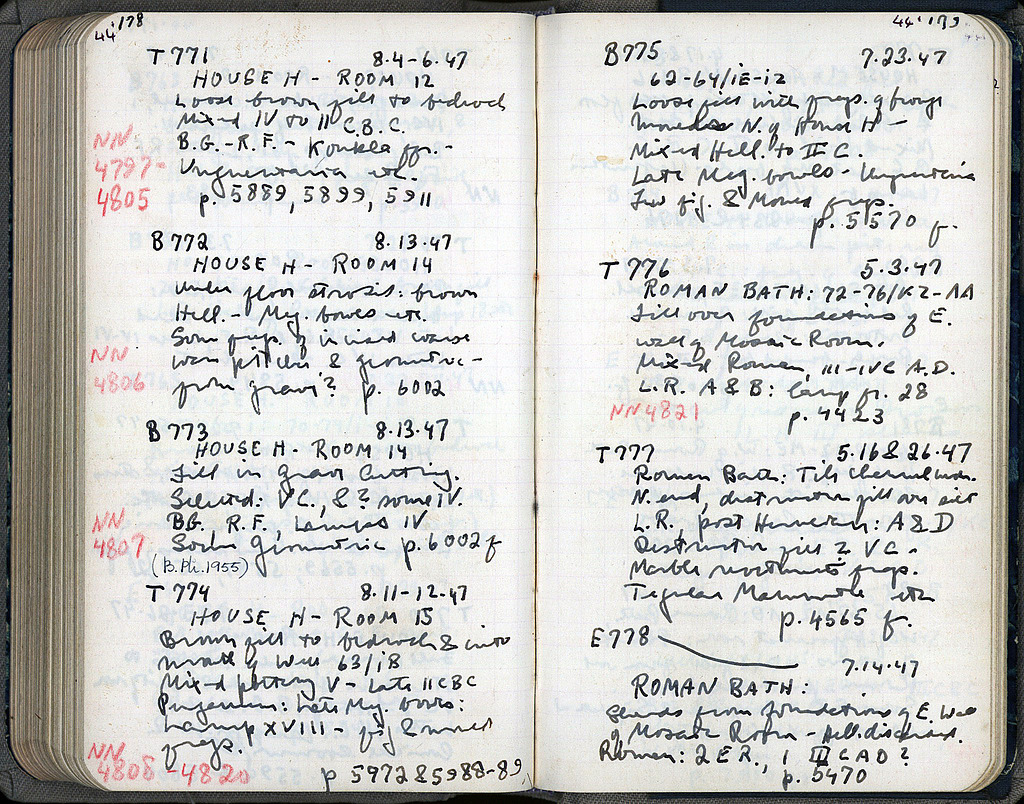 44'178
T 771 8.4-6.47
HOUSE H - ROOM 12
Loose brown fill to bedrock
Mixed IV to II C.B.C.
NN
4797-
4805
B.G.-R.F.- Koukla fr.-
Unguentaria etc.
p. 5889, 5899, 5911
B 772 8.13.47
HOUSE H - ROOM 14
Under floor strosis: brown
Hell. - Meg. bowls etc.
Some frags. of incised coarse
NN
4806
ware pitcher & geometric -
from grave? p. 6002
B 773 8.13.47
HOUSE H - ROOM 14
Fill in Grave Cutting.
Selected: V C., & ? some IV.
NN
4807
BG. R.F., Lamps IV
Some Geometric p. 6002 f
(B.Ph. 1955)
T 774 8.11-12.47
HOUSE H - ROOM 15
Brown fill to bedrock & into
mouth of Well 63/ΙΒ
Mixed pottery V - Late II C BC
Late Meg. bowls:
Lamp XVIII - fig &
frags.
NN
4808-4820
p 5972 & 5988-89
44'179
B 775 7.23.47
62-64/ΙΕ-ΙΖ
Loose fill with frags. of
N. of House H -
Mixed Hell. to III C.
Late Meg. bowls - Unguentaria
Few fig. & Mould frags.
p. 5570 f.
T 776 5.3.47
ROMAN BATH: 72-76/ΚΖ-ΛΑ
Fill over foundations of E.
wall of Mosaic Room.
Mixed Roman, III-IV C A.D.
L.R. A & B: lamp fr. 28
NN4821
p. 4423
T 777 5.16 & 26.47
Roman Bath: Tile Channel
N. end, destruction fill over silt
L.R., post Herulian: A & D
Destruction fill ? V C -
Marble revetment frags.
Tegulae Mammatae etc
p. 4565 f.
E 778 7.14.47
ROMAN BATH:
Sherds from foundations of E. Wall
of Mosaic Room - Hell. discard.
Roman: 2 ER., 1 III C AD ?
p. 5470